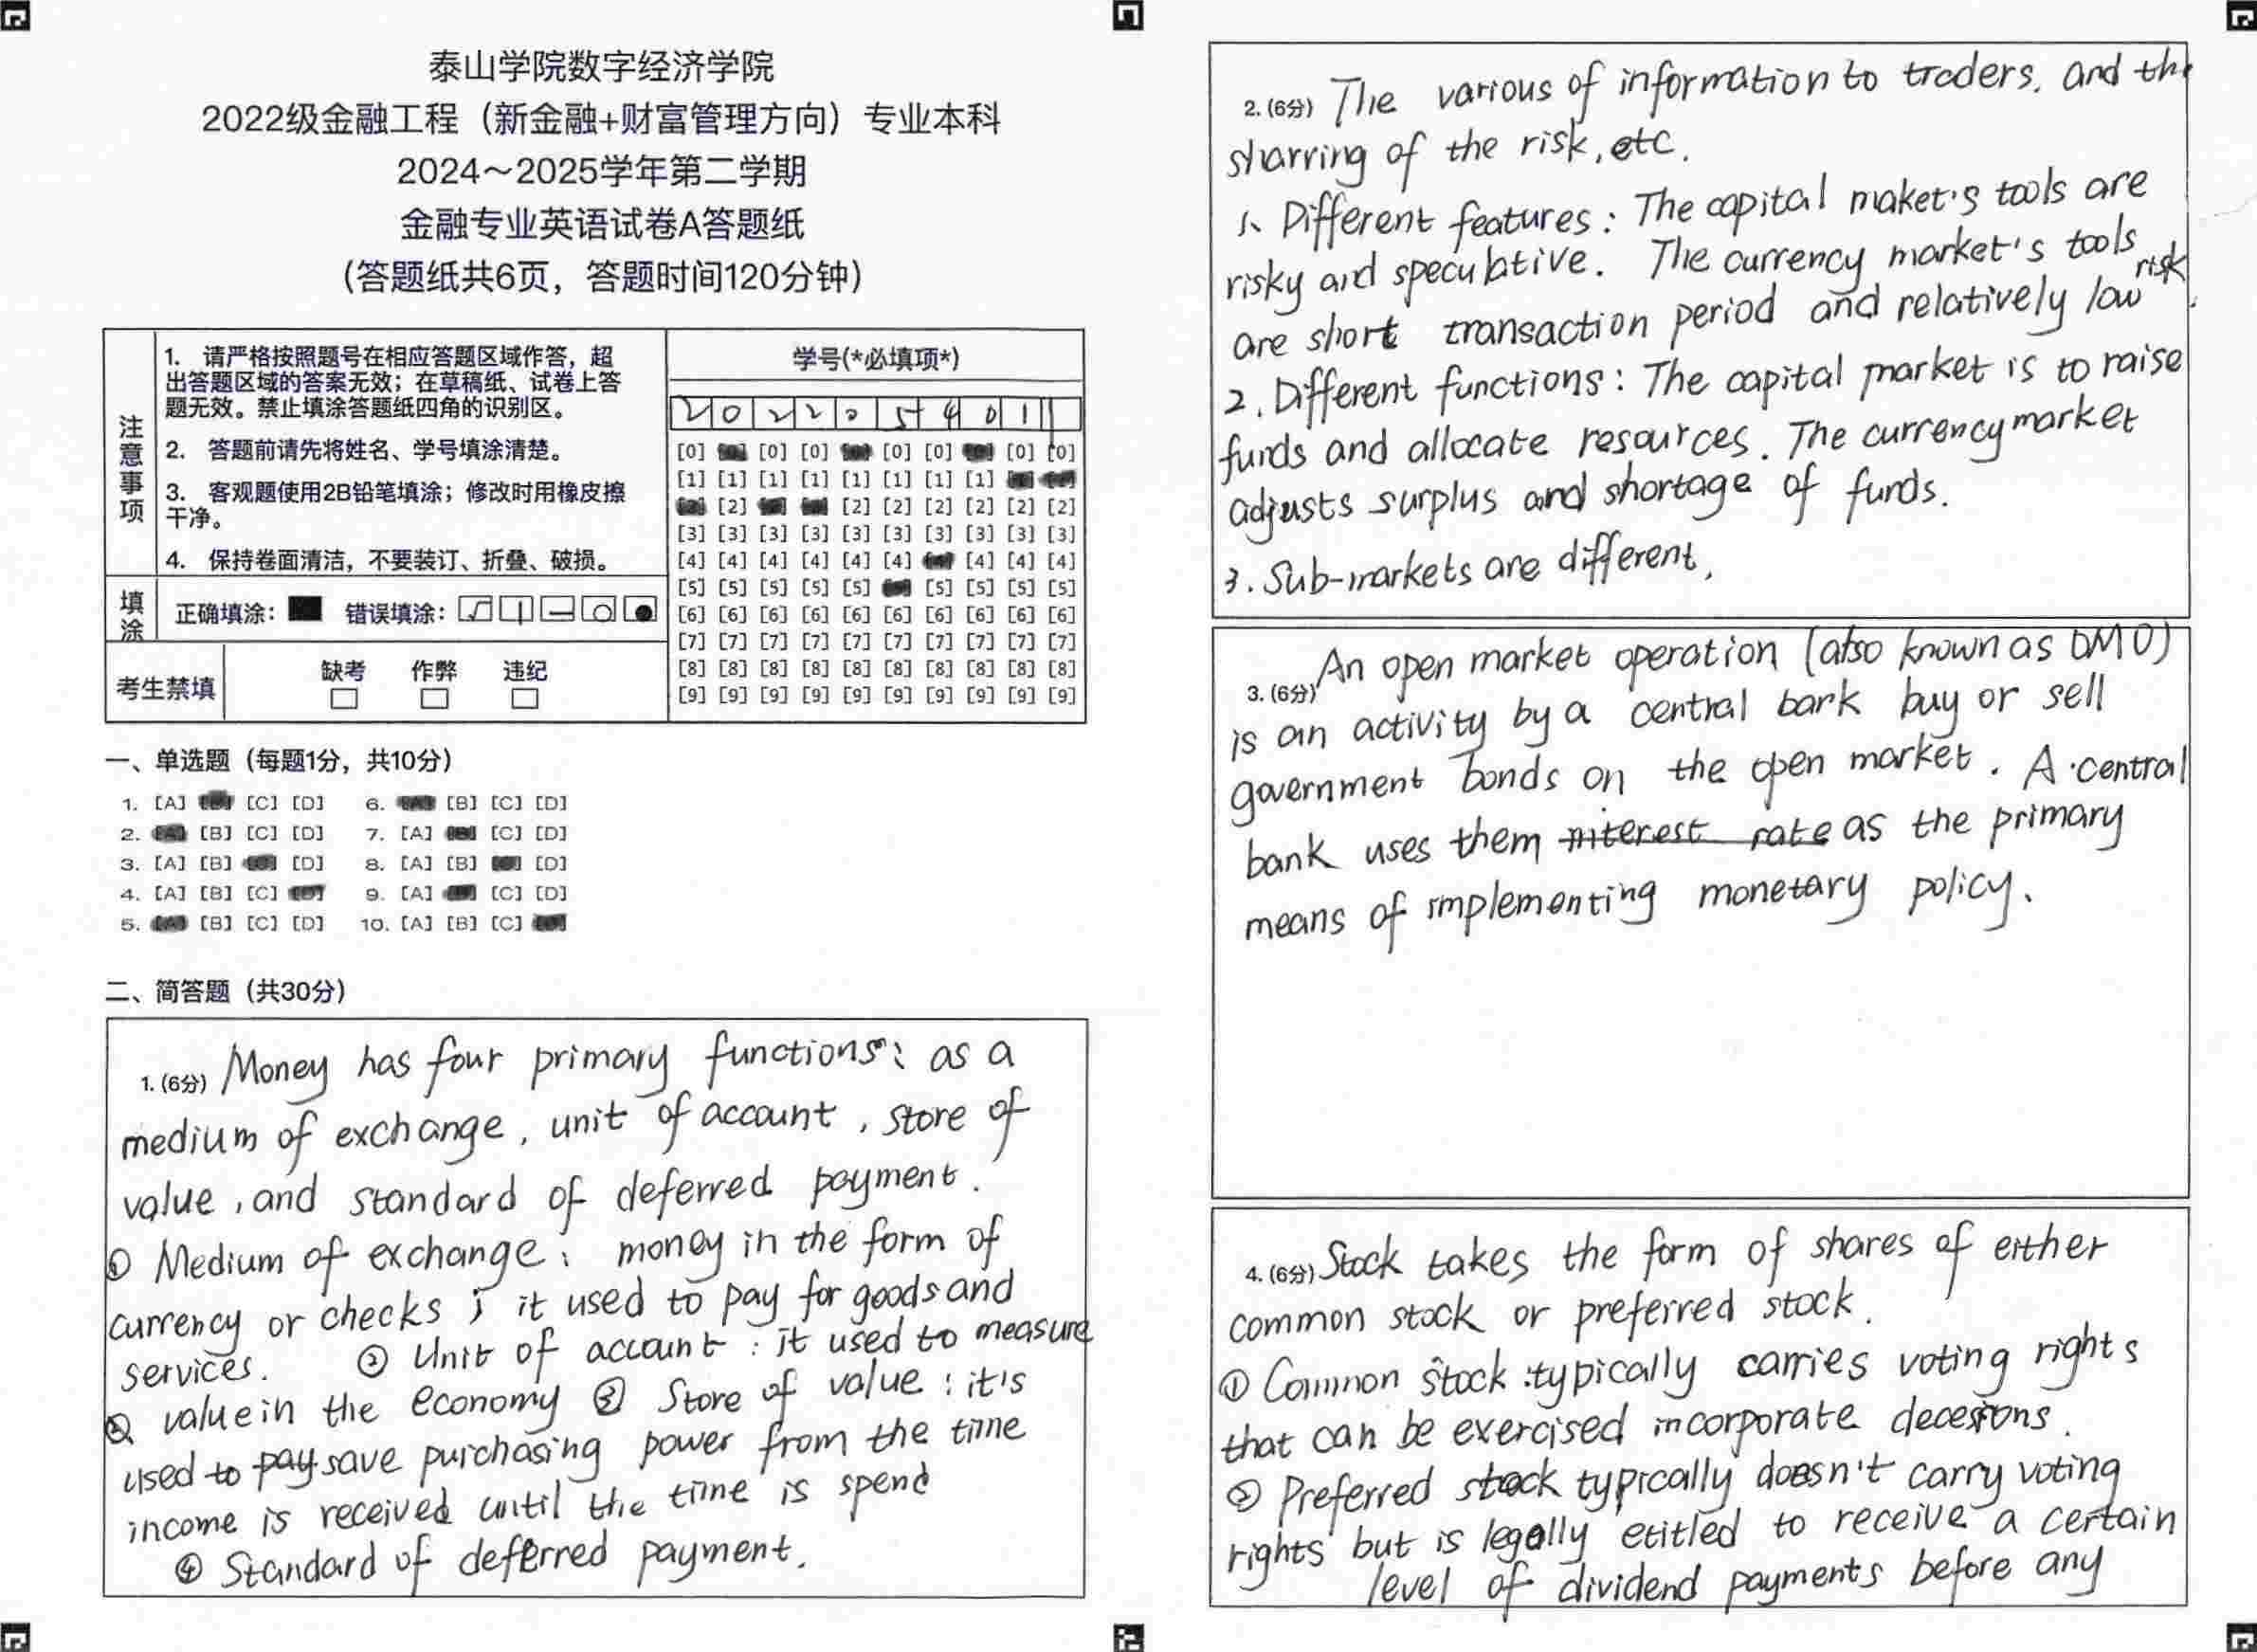 泰山学院数字经济学院
2022级金融工程（新金融+财富管理方向）专业本科
2024～2025学年第二学期
金融专业英语试卷A答题纸
（答题纸共6页，答题时间120分钟）
注意事项
1. 请严格按照题号在相应答题区域作答，超
出答题区域的答案无效；在草稿纸、试卷上答
题无效。禁止填涂答题纸四角的识别区。
2. 答题前请先将姓名、学号填涂清楚。
3. 客观题使用2B铅笔填涂；修改时用橡皮擦
干净。
4. 保持卷面清洁，不要装订、折叠、破损。
填涂 正确填涂： 错误填涂：
考生禁填 缺考 作弊 违纪
学号(*必填项*)
2 0 2 2 0 5 4 0 1 1
[0] [0] [0] [0] [0] [0] [0] [0]
[1] [1] [1] [1] [1] [1] [1] [1]
[2] [2] [2] [2] [2] [2] [2]
[3] [3] [3] [3] [3] [3] [3] [3] [3] [3]
[4] [4] [4] [4] [4] [4] [4] [4] [4]
[5] [5] [5] [5] [5] [5] [5] [5] [5]
[6] [6] [6] [6] [6] [6] [6] [6] [6] [6]
[7] [7] [7] [7] [7] [7] [7] [7] [7] [7]
[8] [8] [8] [8] [8] [8] [8] [8] [8] [8]
[9] [9] [9] [9] [9] [9] [9] [9] [9] [9]
一、单选题（每题1分，共10分）
1. [A] [C] [D] 6. [B] [C] [D]
2. [B] [C] [D] 7. [A] [C] [D]
3. [A] [B] [D] 8. [A] [B] [D]
4. [A] [B] [C] 9. [A] [C] [D]
5. [B] [C] [D] 10. [A] [B] [C]
二、简答题（共30分）
1. (6分) Money has four primary functions: as a
medium of exchange, unit of account, store of
value, and standard of deferred payment.
① Medium of exchange: money in the form of
currency or checks; it used to pay for goods and
services. ② Unit of account: it used to measure
value in the economy ③ Store of value: it's
used to pay save purchasing power from the time
income is received until the time is spend
④ Standard of deferred payment.
2. (6分) The various of information to traders, and the
sharring of the risk, etc.
1、Different features: The capital maket's tools are
risky and speculative. The currency market's tools
are short transaction period and relatively low risk.
2. Different functions: The capital market is to raise
funds and allocate resources. The currency market
adjusts surplus and shortage of funds.
3. Sub-markets are different,
3. (6分) An open market operation (also known as OMO)
is an activity by a central bank buy or sell
government bonds on the open market. A central
bank uses them interest rate as the primary
means of implementing monetary policy.
4. (6分) Stock takes the form of shares of either
common stock or preferred stock.
① Common stock: typically carries voting rights
that can be exercised in corporate decesions.
② Preferred stock typically doesn't carry voting
rights but is legally etitled to receive a certain
level of dividend payments before any